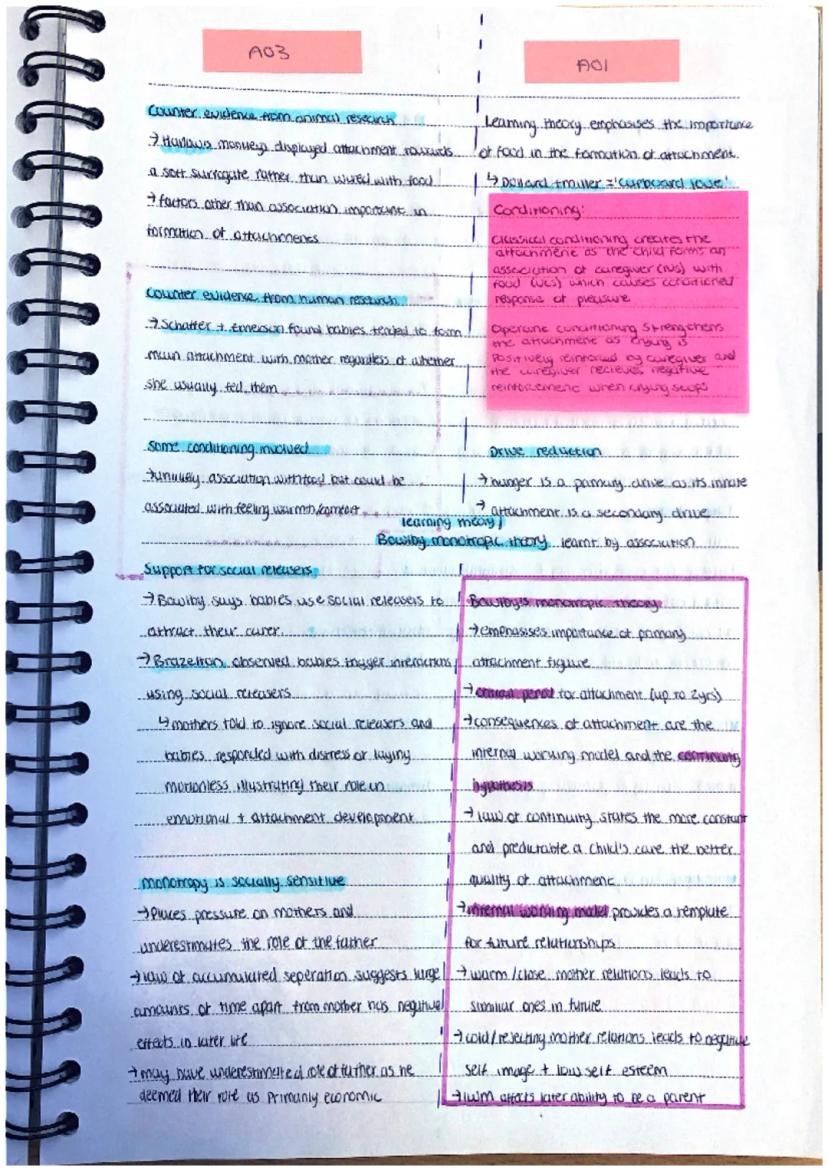 AO3
Counter evidence from animal research
→ Harlows monkeys displayed attachment towards
a soft surrogate rather than wired with food
→ factors other than association important in
formation of attachments
Counter evidence from human research
→ Schaffer + Emerson found babies tended to form
main attachment with mother regardless of whether
she usually fed them
Some conditioning involved
→ unlikely association with food but could be
associated with feeling warmth/comfort
learning theory/
Bowlby monotropic theory
Support for social releasers
→ Bowlby says babies use social releasers to
attract their carer
→ Brazelton observed babies trigger interactions
using social releasers
↳ mothers told to ignore social releasers and
babies responded with distress or laying
motionless illustrating their role in
emotional + attachment development
monotropy is socially sensitive
→ Places pressure on mothers and
underestimates the role of the father
→ law of accumulated seperation suggests large
amounts of time apart from mother has negative
effects in later life
→ may have underestimated role of father as he
deemed their role as primarily economic
AO1
Learning theory emphasises the importance
of food in the formation of attachment.
↳ Dollard + miller = 'Cupboard love'
Conditioning:
Classical conditioning creates the
attachment as the child forms an
association of caregiver (NS) with
food (UCS) which causes conditioned
response of pleasure
Operant conditioning strengthens
the attachment as crying is
positively reinforced by caregiver and
the caregiver recieves negative
reinforcement when crying stops
Drive reduction
→ hunger is a primary drive as its innate
→ attachment is a secondary drive
learnt by association
Bowlby's monotropic theory
→ emphasises importance of primary
attachment figure
→ critical period for attachment (up to 2yrs)
→ consequences of attachment are the
internal working model and the continuity
hypothesis
→ law of continuity states the more constant
and predictable a child's care the better
quality of attachment
→ internal working model provides a template
for future relationships
→ warm/close mother relations leads to
similiar ones in future
→ cold/rejecting mother relations leads to negative
self image + low self esteem
→ IWM affects later ability to be a parent